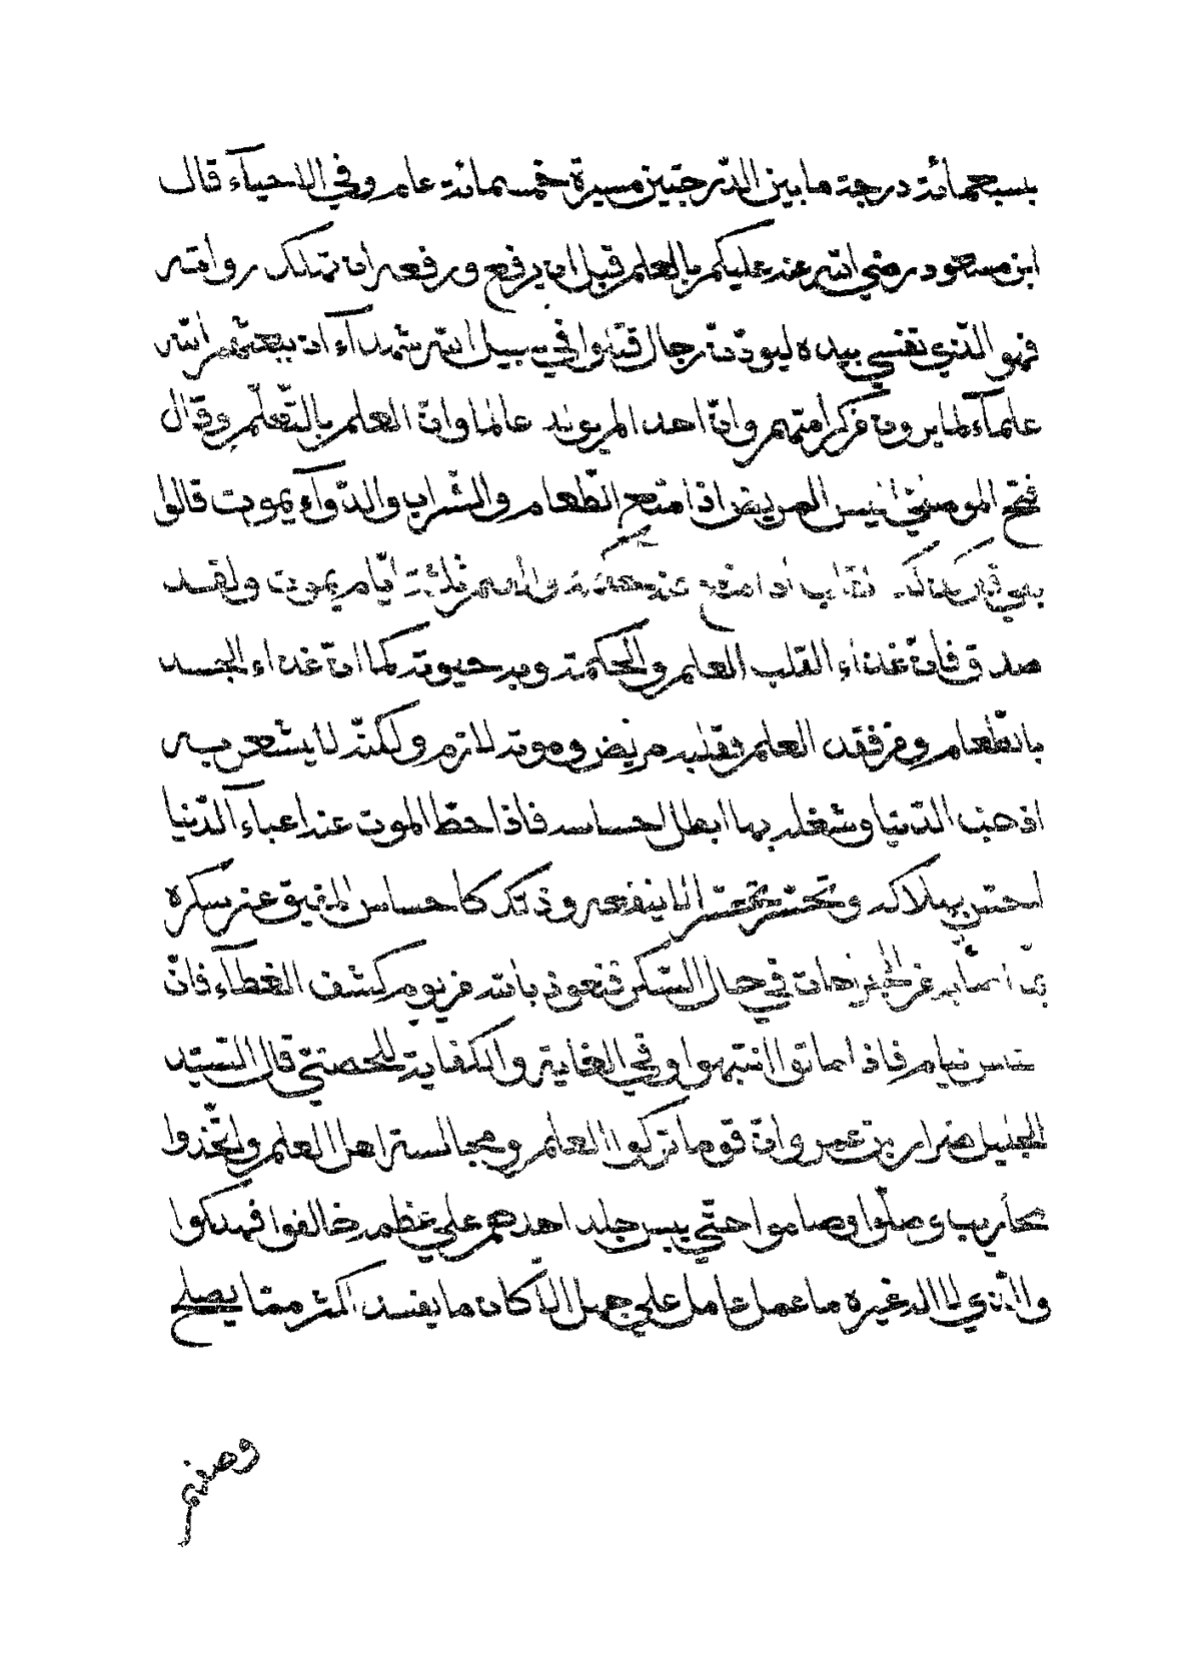 بسبعمائة درجة ما بين الدّرجتين مسيرة خمسمائة عام وفي الاحيآء قال
ابن مسعود رضي الله عنه عليكم بالعلم قبل ان يرفع ورفعه ان تهلك رواته
فهو الّذي نفسي بيده ليودّنّ رجال قتلوا في سبيل الله شهدآء ان يبعثهم الله
علمآء لما يرون من كرامتهم وانّ احدا لم يولد عالما وانّ العلم بالتّعلّم وقال
فتح الموصليّ اليس المريض اذا منع الطّعام والشّراب والدّوآء يموت قالوا
بلي قال كذلك القلب اذا منع عنه الحكمة والعلم ثلثة ايّام يموت ولقد
صدق فانّ غذاء القلب العلم والحكمة وبه حيوته كما انّ غذاء الجسد
بالطّعام ومن فقد العلم فقلبه مريض وموته لازم ولكنّه لا يشعر به
اذ حبّ الدّنيا وشغله بها ابطل احساسه فاذا حطّ الموت عنه اعباء الدّنيا
احسّ بهلاكه وتحسّر تحسّرا لا ينفعه وذلك كاحساس المفيق عن سكره
بما اصابه من الجراحات في حال السّكر فنعوذ بالله من يوم كشف الغطآء فانّ
النّاس نيام فاذا ماتوا انتبهوا وفي الغاية والكفاية للحصنيّ قال السّيّد
الجليل ضرار بن عمرو انّ قوما تركوا العلم ومجالسة اهل العلم واتّخذوا
محاريب وصلّوا وصاموا حتّي يبس جلد احدهم علي عظمه خالفوا فهلكوا
والّذي لا اله غيره ما عمل عامل علي جهل الّا كان ما يفسد اكثر ممّا يصلح